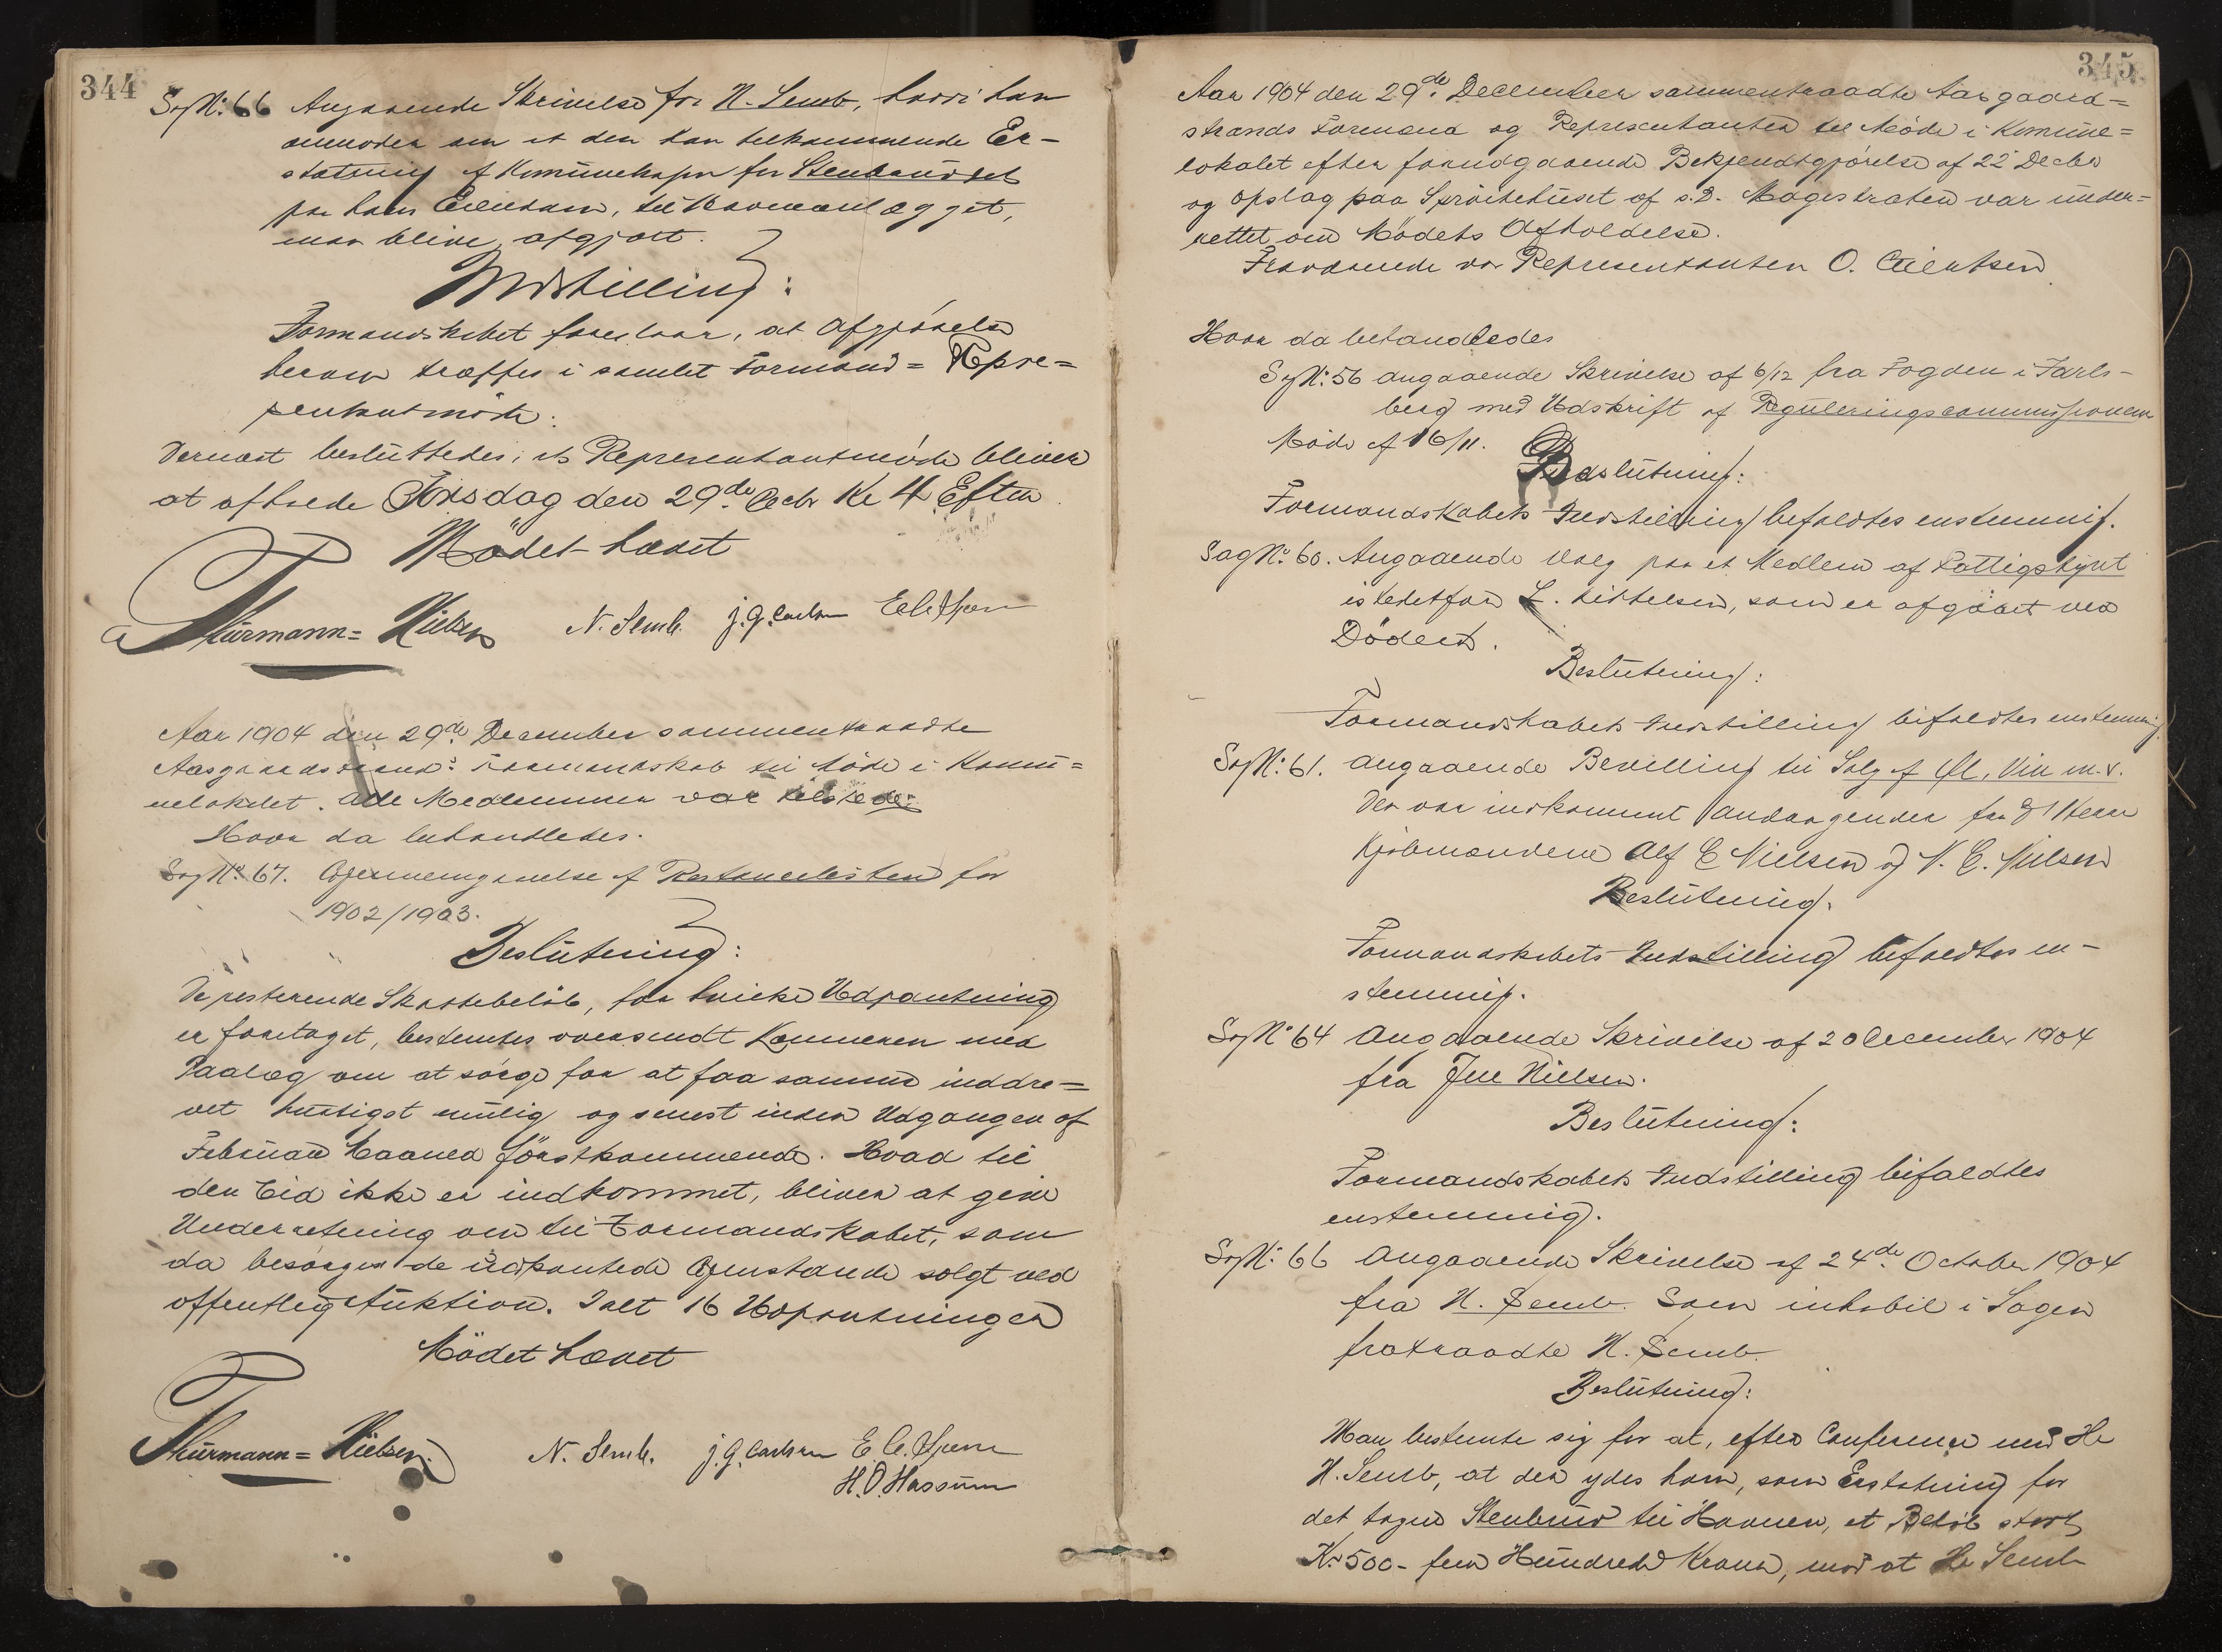 344
Sag N: 66 Angaaende Skrivelse fra N. Semb, hvori han
anmoder om at den ham tilkommende Er-
statning af Kommunekassen for Stenbruddet
paa hans Eiendom, til Havneanlægget,
maa blive afgjort.
Indstilling:
Formandskabet foreslaar, at Afgjörelse
herom træffes i samlet Formand= Repre=
sentantmöde.
Dernæst besluttedes, at Representantmöde bliver
at afholde Torsdag den 29de Decbr Kl 4 Efterm.
Mödet hævet
Thurmann=Nielsen N. Semb. J. G. Carlsen
Aar 1904 den 29de December sammentraadte
Aasgaardstrands Formandskab til Möde i Komu=
nelokalet. Alle Medlemmer var tilstede.
Hvor da behandledes.
Sag N: 67. Gjennemgaaelse af Restancelisten for
1902/1903.
Beslutning:
De resterende Skattebelöb, for hvilke Udpantning
er foretaget, bestemtes oversendt Kæmneren med
Paalæg om at sörge for at faa samme inddre=
vet hurtigst mulig og senest inden Udgangen af
Februar Maaned förstkommende. Hvad til
den Tid ikke er indkommet, bliver at give
Underretning om til Formandskabet, som
da besörger de udpantede Gjenstande solgt ved
offentlig Auktion. Ialt 16 Udpantninger
Mödet hævet
Thurmann=Nielsen. N. Semb. J. G. Carlsen
H. O. Hassum
345
Aar 1904 den 29de December sammentraadte Aasgaard=
strands Formænd og Representanter til Möde i Komune=
lokalet efter forudgaaende Bekjendtgjörelse af 22 Decbr
og Opslag paa Spröitehuset af s.D. Magistraten var under=
rettet om Mödets Afholdelse.
Fraværende var Representanten O.
Hvor da behandledes
Sag N: 56 angaaende Skrivelse af 6/12 fra Fogden i Jarls-
berg med Udskrift af Reguleringscommissionens
Möde af 16/11.
Beslutning:
Formandskabets Indstilling bifaldtes enstemmig.
Sag N: 60. Angaaende Valg paa et Medlem af Fattigstyret
istedetfor L. Kittelsen, som er afgaaet ved
Döden.
Beslutning:
Formandskabets Indstilling bifaldtes enstemmig.
Sag N: 61. angaaende Bevilling til Salg af Öl, Vin m.v.
Der var indkommet Andragender fra D'Herr
Kjöbmændene Alf E Nielsen og N. E. Nilsen
Beslutning.
Formandskabets Indstilling bifaldtes en-
stemmig.
Sag N: 64 Angaaende Skrivelse af 20 December 1904
fra Jul Nielsen.
Beslutning:
Formandskabets Indstilling bifaldtes
enstemmig.
Sag N: 66 Angaaende Skrivelse af 24de October 1904
fra N. Semb. Som inhabil i Sagen
fratraadte N. Semb.
Beslutning:
Man bestemte sig for at, efter Conference med Hr
N. Semb, at der ydes ham, som Erstatning for
det tagne Stenbrud til Havnen, et Belöb stort
Kr 500- fem Hundrede Kroner, mod at Hr Semb